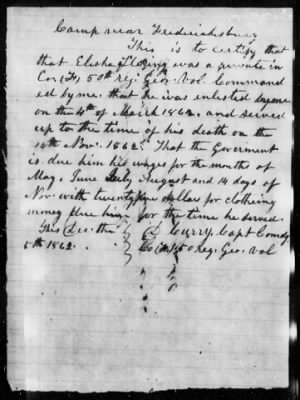 Camp near Fredericksburg
This is to certify that
that Elisha was a private in
Co 50th reg. Geo. Vol. Command
ed by me. that he was enlisted
on the 4th of March 1862, and served
up to the time of his death on the
14th Nov. 1862. That the Goverment
is due him his wages for the months of
May, June July August and 14 days of
Nov. with twenty five dollars for clotheing
money for the time he served.
This Dec. the
5th 1862. Curry. Capt Comdg
Co 50 Reg. Geo. Vol